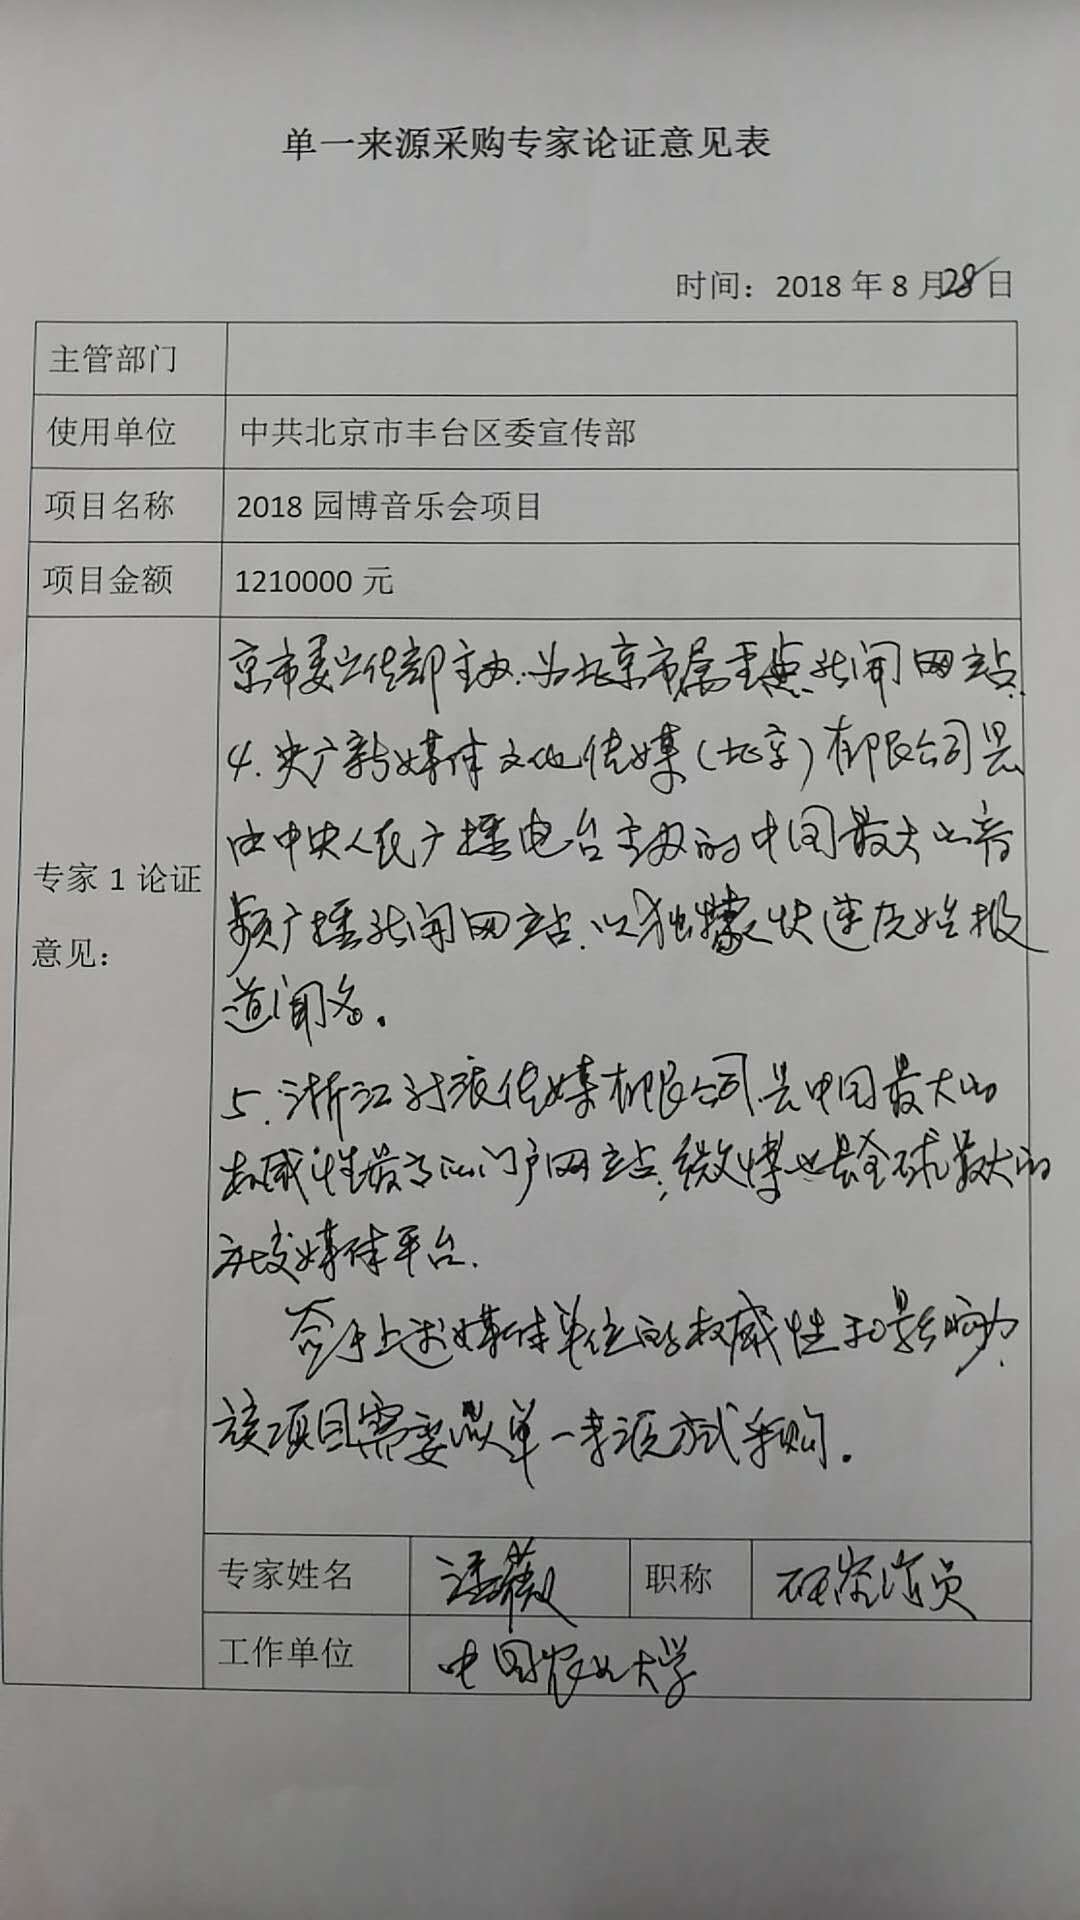 单一来源采购专家论证意见表
时间：2018 年 8 月28日
主管部门
使用单位 中共北京市丰台区委宣传部
项目名称 2018 园博音乐会项目
项目金额 1210000 元
专家 1 论证
意见：
京市委宣传部主办，为北京市属重点新闻网站.
4.央广新媒体文化传媒（北京）有限公司是
由中央人民广播电台主办的中国最大的音
频广播新闻网站.以独家快速原始报
道闻名。
5.浙江 浪传媒有限公司是中国最大的
权威性最高的门户网站,微博也是全球最大的
社交媒体平台.
鉴于上述媒体单位的权威性和影响力
该项目需要以单一来源方式采购.
专家姓名 潘薇 职称 研究员
工作单位 中国农业大学